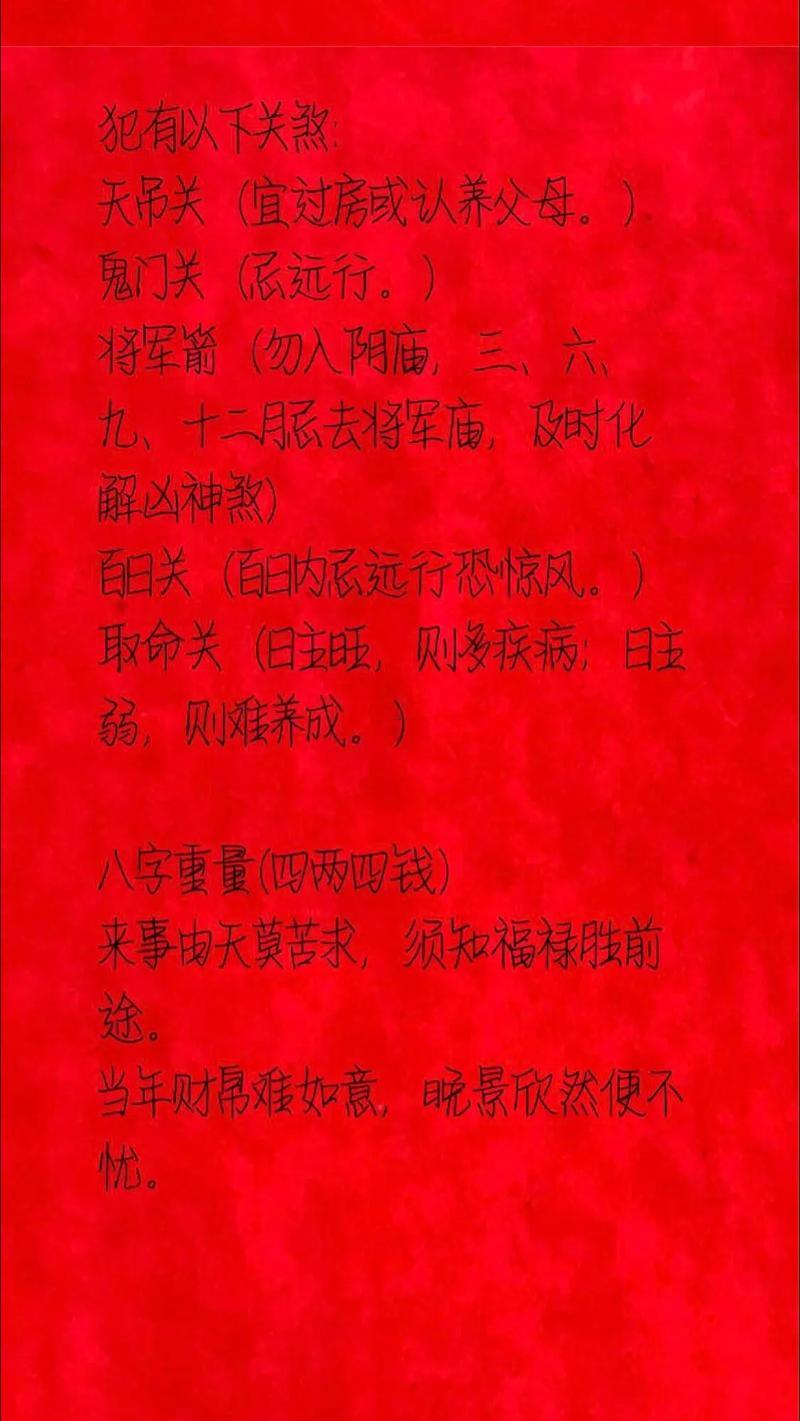 犯有以下关煞:
天吊关（宜过房或认养父母。）
鬼门关（忌远行。）
将军箭（勿入阴庙，三、六、
九、十二月忌去将军庙，及时化
解凶神煞）
百日关（百日内忌远行恐惊风。）
取命关（日主旺，则多疾病；日主
弱，则难养成。）
八字重量(四两四钱)
来事由天莫苦求，须知福禄胜前
途。
当年财帛难如意，晚景欣然便不
忧。